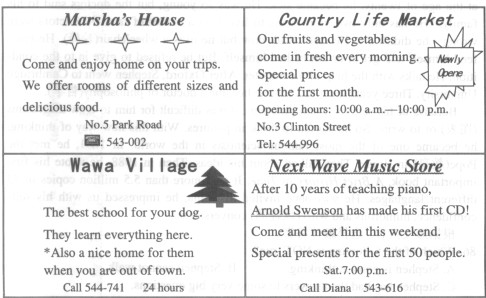 Marsha's House
Come and enjoy home on your trips.
We offer rooms of different sizes and
delicious food.
No.5 Park Road
543-002
Country Life Market
Our fruits and vegetables
come in fresh every morning.
Special prices
for the first month.
Opening hours: 10:00 a.m.—10:00 p.m.
No.3 Clinton Street
Tel: 544-996
Newly
Opene
Wawa Village
The best school for your dog.
They learn everything here.
*Also a nice home for them
when you are out of town.
Call 544-741 24 hours
Next Wave Music Store
After 10 years of teaching piano,
Arnold Swenson has made his first CD!
Come and meet him this weekend.
Special presents for the first 50 people.
Sat.7:00 p.m.
Call Diana 543-616